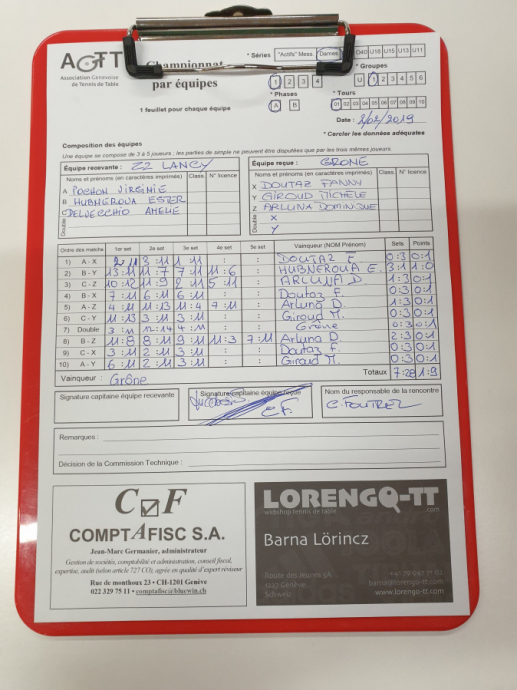 AGTT
Association Genevoise
de Tennis de Table
Championnat
par équipes
1 feuillet pour chaque équipe
* Séries "Actifs" Mess. Dames O40 U18 U15 U13 U11
* Groupes
1 2 3 4 U 1 2 3 4 5 6
* Phases * Tours
A B 01 02 03 04 05 06 07 08 09 10
Date : 2/02/2019
* Cercler les données adéquates
Composition des équipes
Une équipe se compose de 3 à 5 joueurs ; les parties de simple ne peuvent être disputées que par les trois mêmes joueurs.
Équipe recevante : ZZ LANCY Équipe reçue : GRÔNE
Noms et prénoms (en caractères imprimés) Class. N° licence Noms et prénoms (en caractères imprimés) Class. N° licence
A POCHON VIRGINIE X DOUTAZ FANNY
B HUBNEROVA ESTER Y GIROUD MICHELE
C DELVECCHIO AMELIE Z ARLUNA DOMINIQUE
Double X
Y
Ordre des matchs 1er set 2e set 3e set 4e set 5e set Vainqueur (NOM Prénom) Sets Points
1) A - X 2:11 3:11 1:11 : : DOUTAZ F. 0:3 0:1
2) B - Y 13:11 11:7 7:11 11:6 : HUBNEROVA E. 3:1 1:0
3) C - Z 10:12 11:9 2:11 5:11 : ARLUNA D. 1:3 0:1
4) B - X 7:11 6:11 6:11 : : Doutaz F. 0:3 0:1
5) A - Z 4:11 11:13 11:4 7:11 : Arluna D. 1:3 0:1
6) C - Y 11:13 3:11 3:11 : : Giroud M. 0:3 0:1
7) Double 3:11 12:14 4:11 : : Grône 0:3 0:1
8) B - Z 11:8 8:11 9:11 11:3 7:11 Arluna D. 2:3 0:1
9) C - X 3:11 2:11 3:11 : : Doutaz F. 0:3 0:1
10) A - Y 6:11 2:11 3:11 : : Giroud M. 0:3 0:1
Vainqueur : Grône Totaux 7:28 1:9
Signature capitaine équipe recevante Signature capitaine équipe reçue Nom du responsable de la rencontre
C.F.
Remarques :
Décision de la Commission Technique :
C F
COMPTAFISC S.A.
Jean-Marc Germanier, administrateur
Gestion de sociétés, comptabilité et administration, conseil fiscal,
expertise, audit (selon article 727 CO), agréée en qualité d'expert réviseur
Rue de monthoux 23 • CH-1201 Genève
022 329 75 11 • comptafisc@bluewin.ch
LORENGO-TT
webshop tennis de table .com
Barna Lörincz
Route des Jeunes 5A
1227 Genève
Schweiz
www.lorengo-tt.com